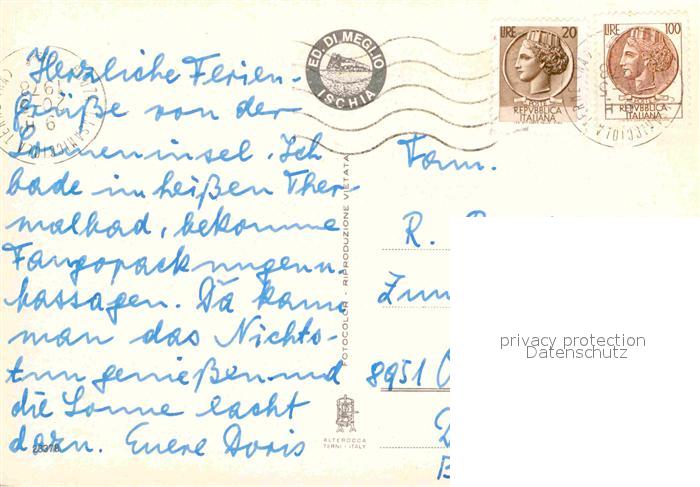 Herzliche Ferien-
grüße von der
Sonneninsel. Ich
bade im heißen Ther-
malbad, bekomme
Fangopackungen u.
Massagen. Da kann
man das Nichts-
tun genießen und
die Sonne lacht
dazu. Euere Doris
28378
ED. DI MEGLIO
ISCHIA
LIRE 20
REPVBBLICA
ITALIANA
LIRE 100
REPVBBLICA
ITALIANA
FOTOCOLOR - RIPRODUZIONE VIETATA
Fam.
R.
8951
ALTEROCCA
TERNI - ITALY
privacy protection
Datenschutz